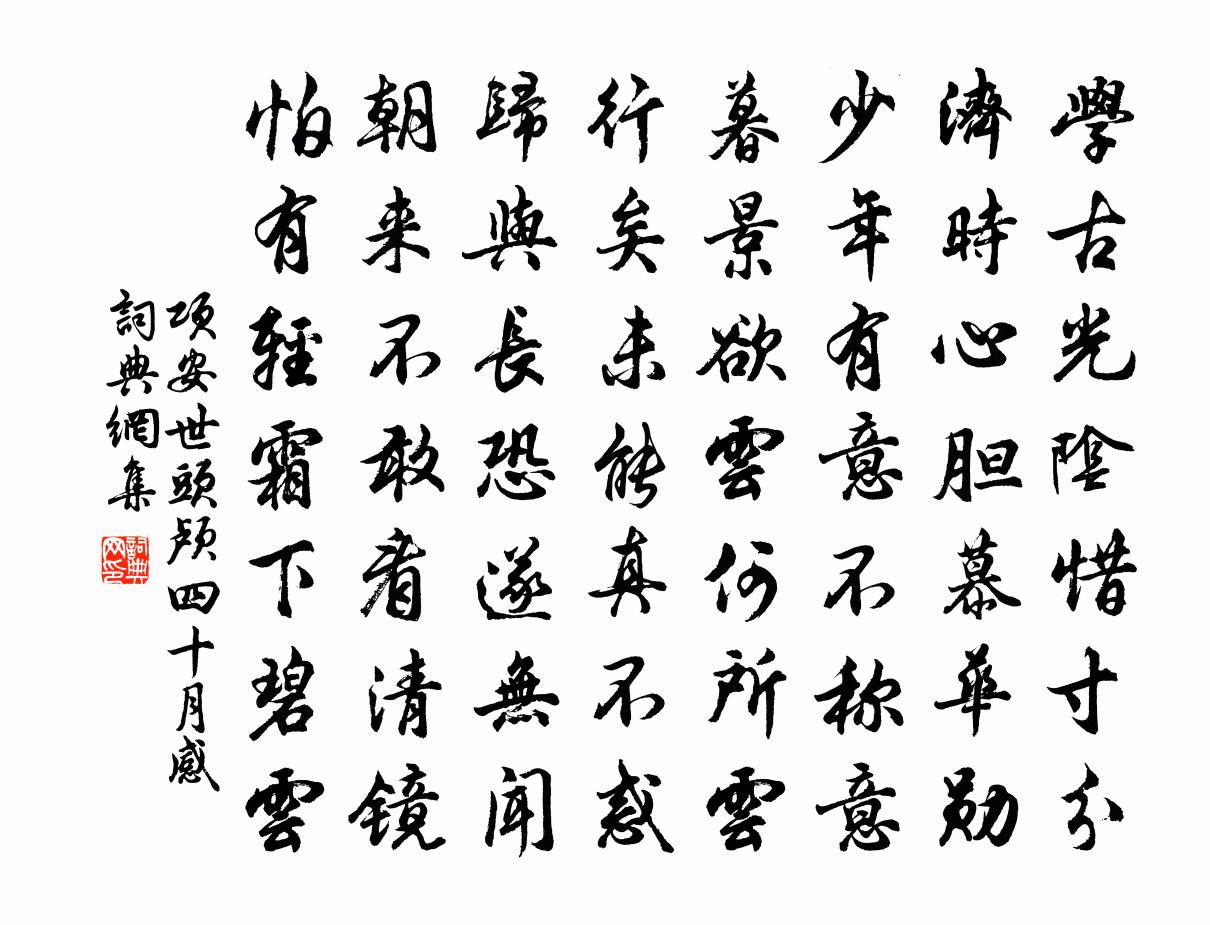 學古光陰惜寸分
濟時心胆慕華勛
少年有意不称意
暮景欲雲何所雲
行矣未能真不惑
歸與長恐遂無聞
朝来不敢看清镜
怕有輕霜下碧雲
項安世頭顱四十月感
詞典網集
詞典網印